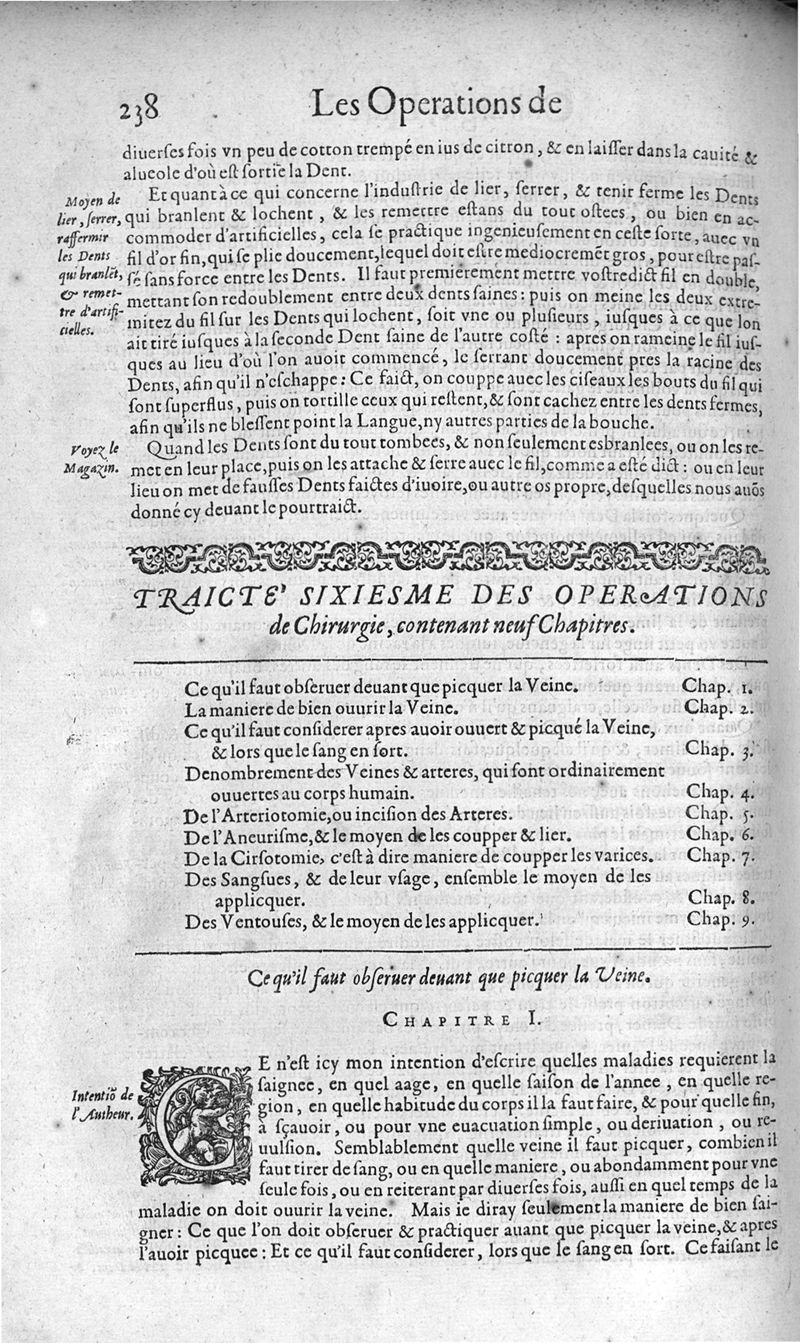 238 Les Operations de
diuerſes fois vn peu de cotton trempé en ius de citron, & en laiſſer dans la cauité &
alueole d'où eſt ſortie la Dent.
Moyen de
lier, ſerrer,
raffermir
les Dents
qui branlẽt,
& remet-
tre d'artifi-
cielles.
Et quant à ce qui concerne l'induſtrie de lier, ſerrer, & tenir ferme les Dents
qui branlent & lochent, & les remettre eſtans du tout oſtees, ou bien en ac-
commoder d'artificielles, cela ſe practique ingenieuſement en ceſte ſorte, auec vn
fil d'or fin, qui ſe plie doucement, lequel doit eſtre mediocremẽt gros, pour eſtre paſ-
ſé ſans force entre les Dents. Il faut premierement mettre voſtredict fil en double,
mettant ſon redoublement entre deux dents ſaines: puis on meine les deux extre-
mitez du fil ſur les Dents qui lochent, ſoit vne ou pluſieurs, iuſques à ce que lon
ait tiré iuſques à la ſeconde Dent ſaine de l'autre coſté : apres on rameine le fil iuſ-
ques au lieu d'où l'on auoit commencé, le ſerrant doucement pres la racine des
Dents, afin qu'il n'eſchappe: Ce faict, on couppe auec les ciſeaux les bouts du fil qui
ſont ſuperflus, puis on tortille ceux qui reſtent, & ſont cachez entre les dents fermes,
afin qu'ils ne bleſſent point la Langue, ny autres parties de la bouche.
Voyez le
Magazin.
Quand les Dents ſont du tout tombees, & non ſeulement esbranlees, ou on les re-
met en leur place, puis on les attache & ſerre auec le fil, comme a eſté dict: ou en leur
lieu on met de fauſſes Dents faictes d'iuoire, ou autre os propre, deſquelles nous auõs
donné cy deuant le pourtraict.
TRAICTE' SIXIESME DES OPERATIONS
de Chirurgie, contenant neuf Chapitres.
Ce qu'il faut obſeruer deuant que picquer la Veine. Chap. 1.
La maniere de bien ouurir la Veine. Chap. 2.
Ce qu'il faut conſiderer apres auoir ouuert & picqué la Veine,
& lors que le ſang en ſort. Chap. 3.
Denombrement des Veines & arteres, qui ſont ordinairement
ouuertes au corps humain. Chap. 4.
De l'Arteriotomie, ou inciſion des Arteres. Chap. 5.
De l'Aneuriſme, & le moyen de les coupper & lier. Chap. 6.
De la Cirſotomie, c'eſt à dire maniere de coupper les varices. Chap. 7.
Des Sangſues, & de leur vſage, enſemble le moyen de les
applicquer. Chap. 8.
Des Ventouſes, & le moyen de les applicquer. Chap. 9.
Ce qu'il faut obſeruer deuant que picquer la Veine.
CHAPITRE I.
Intentiõ de
l'Autheur.
CE n'eſt icy mon intention d'eſcrire quelles maladies requierent la
ſaignee, en quel aage, en quelle ſaiſon de l'annee, en quelle re-
gion, en quelle habitude du corps il la faut faire, & pour quelle fin,
à ſçauoir, ou pour vne euacuation ſimple, ou deriuation, ou re-
uulſion. Semblablement quelle veine il faut picquer, combien il
faut tirer de ſang, ou en quelle maniere, ou abondamment pour vne
ſeule fois, ou en reiterant par diuerſes fois, auſſi en quel temps de la
maladie on doit ouurir la veine. Mais ie diray ſeulement la maniere de bien ſai-
gner: Ce que l'on doit obſeruer & practiquer auant que picquer la veine, & apres
l'auoir picquee: Et ce qu'il faut conſiderer, lors que le ſang en ſort. Ce faiſant le